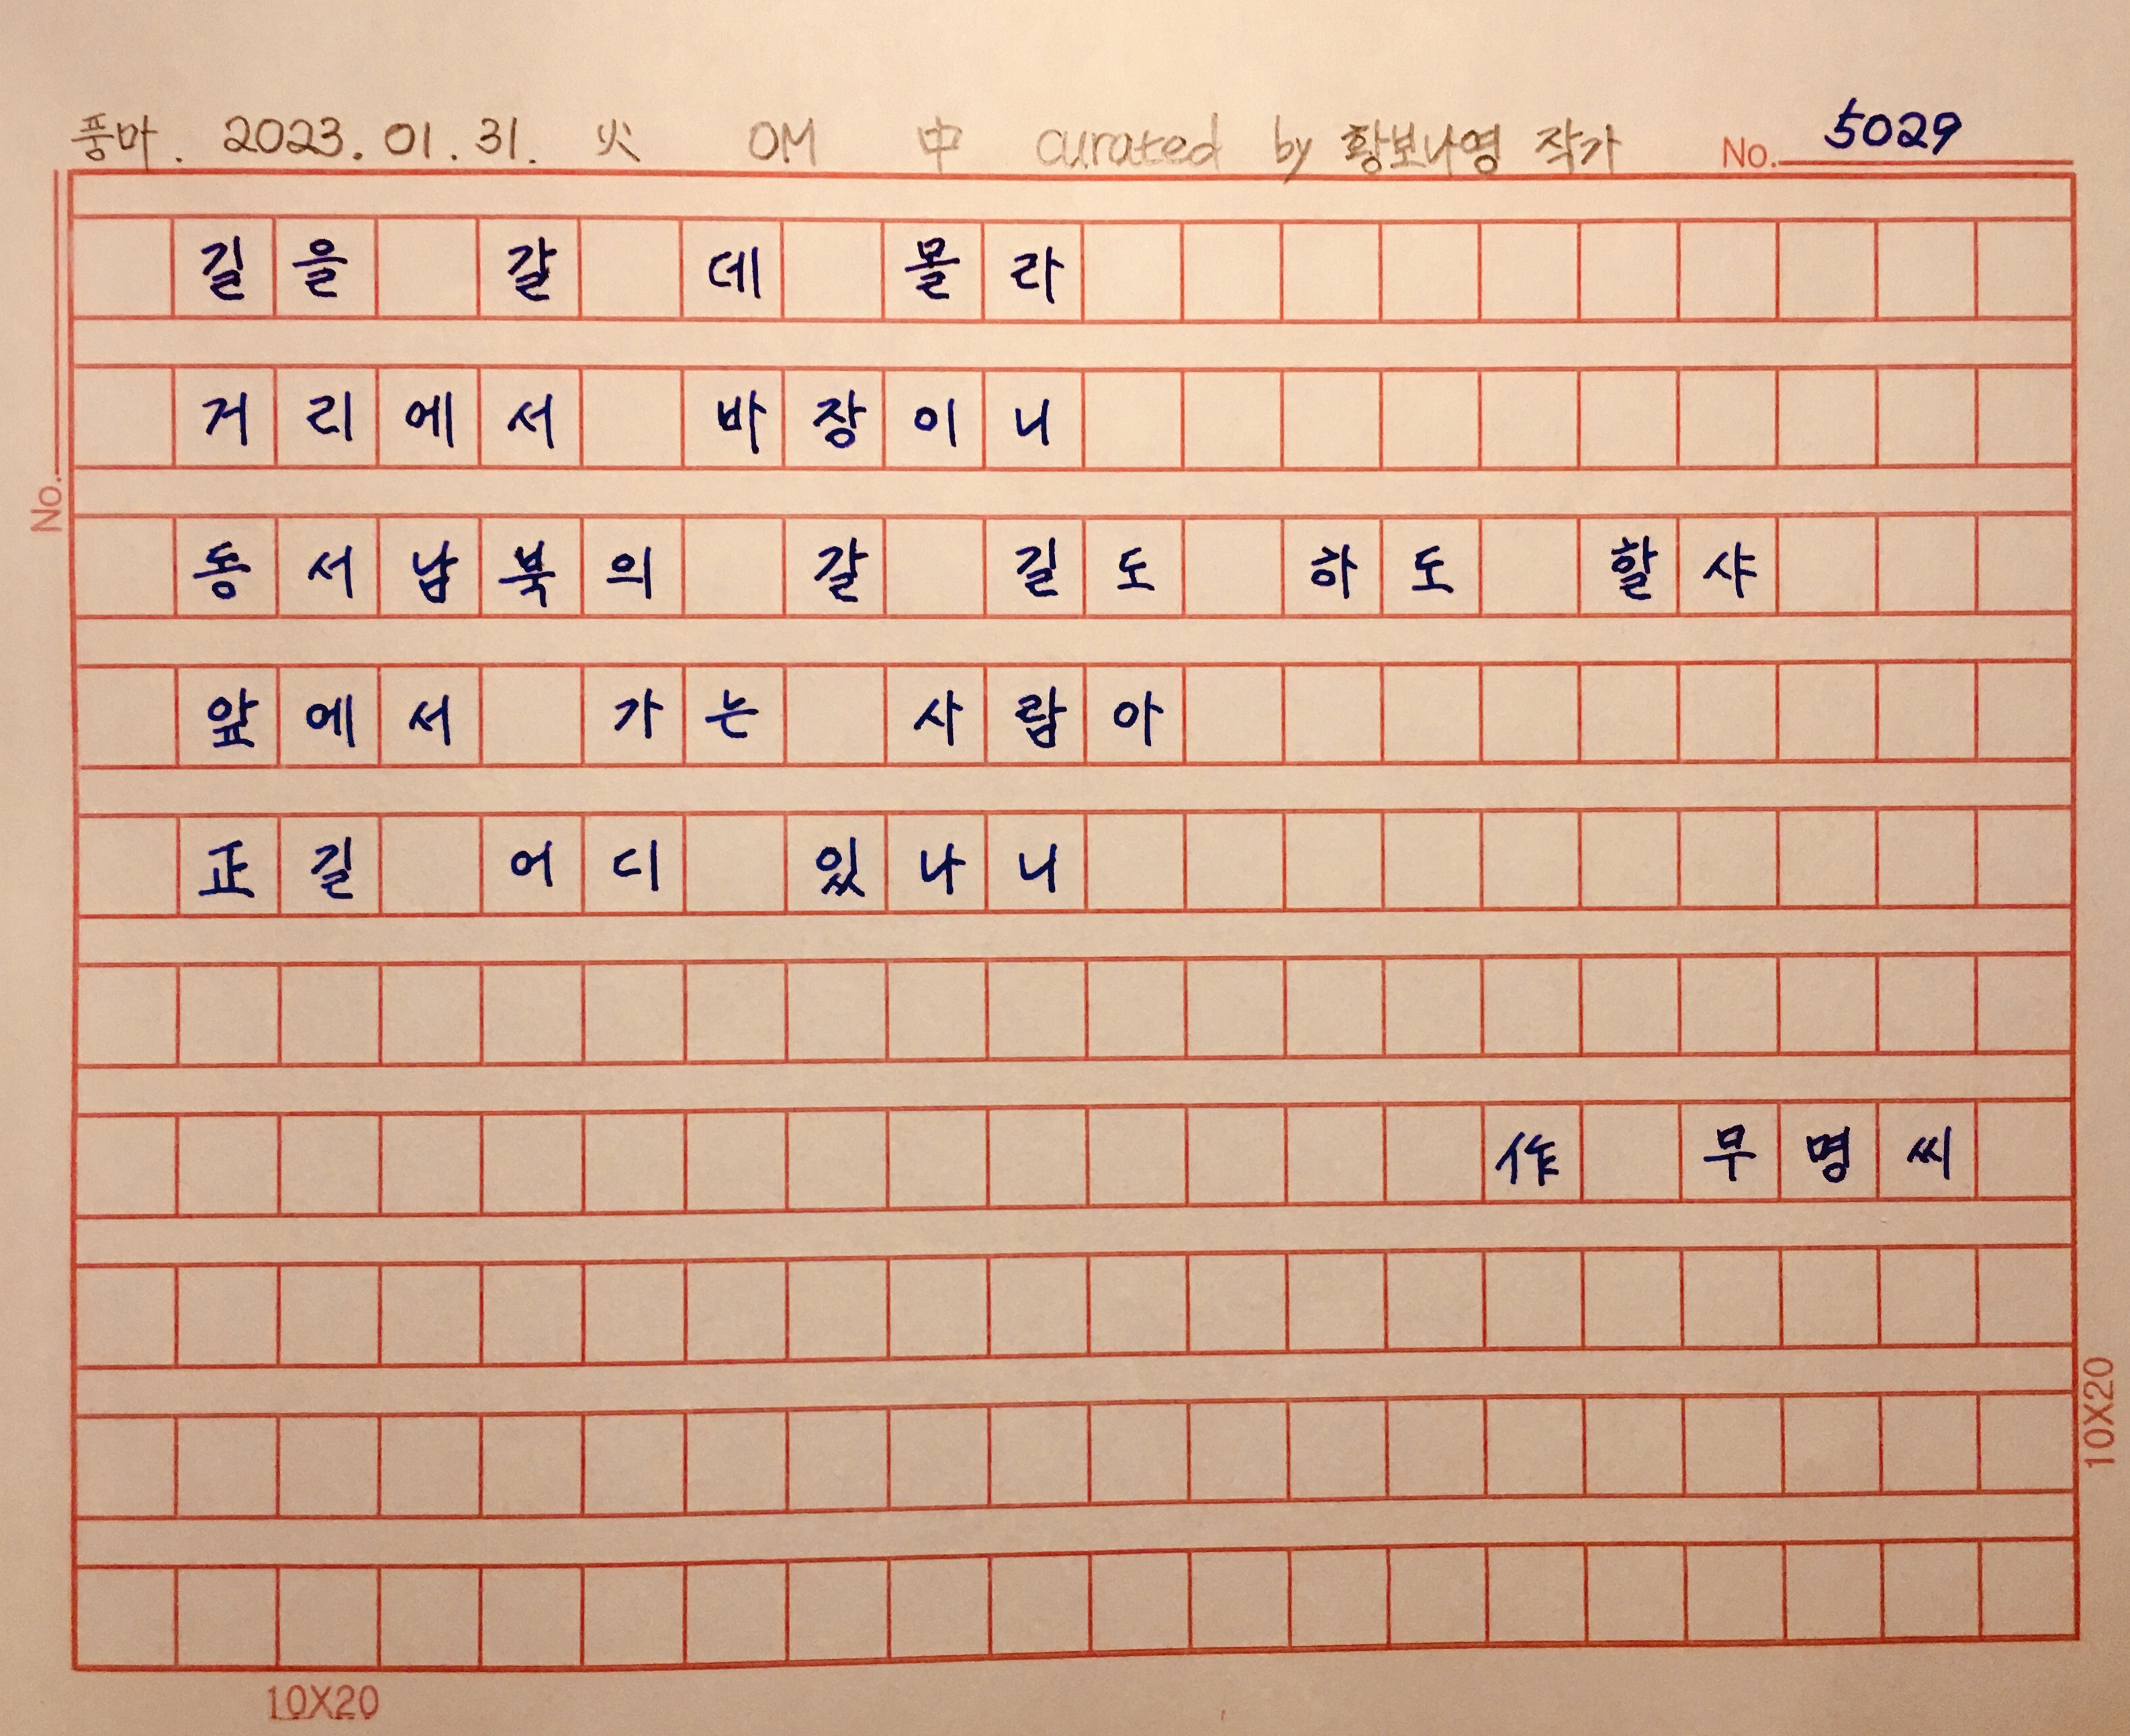 풍마. 2023. 01. 31. 火 OM 中 curated by 황보나영 작가 No. 5029
길을 갈 데 몰라
거리에서 바장이니
동서남북의 갈 길도 하도 할샤
앞에서 가는 사람아
正길 어디 있나니
作 무명씨
No.
10X20
10X20